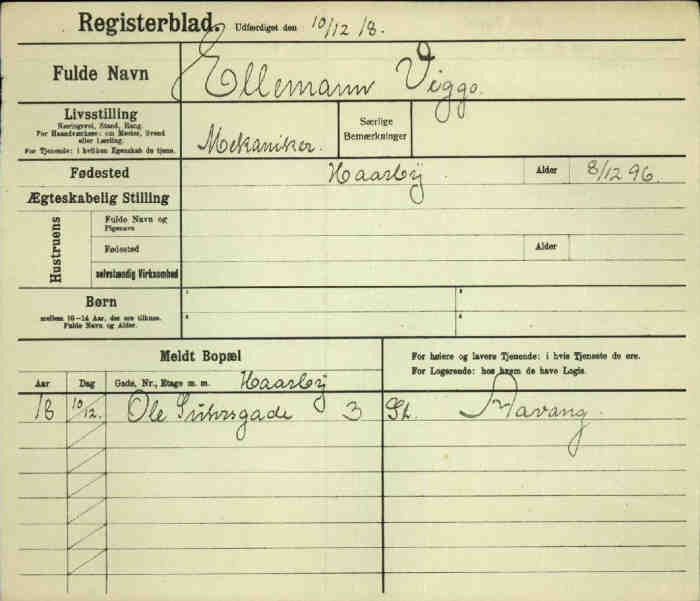 Registerblad. Udfærdiget den 10/12 18.
Fulde Navn Ellemann Viggo.
Livsstilling
Næringsvei, Stand, Rang.
For Haandværkere: om Mester, Svend
eller Lærling.
For Tjenende: i hvilken Egenskab de tjene.
Mekaniker.
Særlige
Bemærkninger
Fødested Haarby Alder 8/12 96.
Ægteskabelig Stilling
Hustruens
Fulde Navn og
Pigenavn
Fødested Alder
selvstændig Virksomhed
Børn
mellem 10-14 Aar, der ere tilhuse.
Fulde Navn og Alder.
Meldt Bopæl
For høiere og lavere Tjenende: i hvis Tjeneste de ere.
For Logerende: hos hvem de have Logis.
Aar Dag Gade, Nr., Etage m. m. Haarby
18 10/12. Ole Suhrsgade 3 St. Ravang.